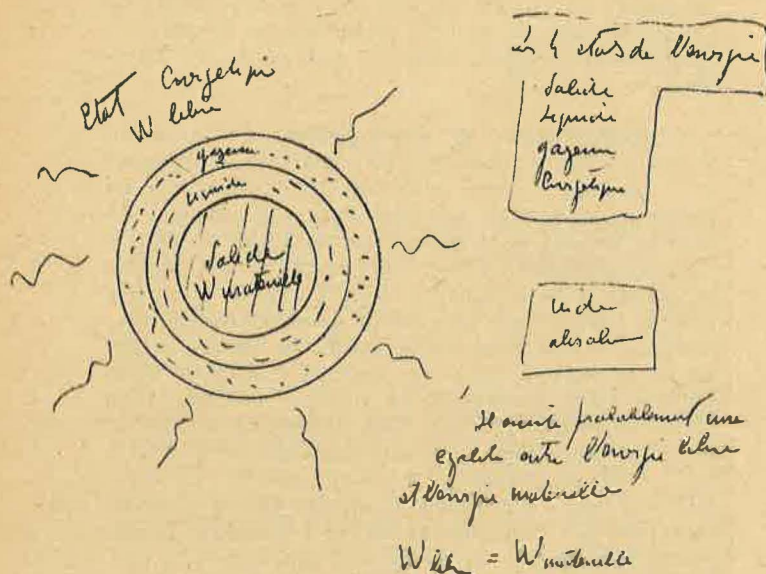 Etat Energetique
W libre
gazeux
liquide
Solide
W materielle
les 4 etats de l'energie
Solide
liquide
gazeux
Energetique
vide
absolu
Il existe probablement une
egalite entre l'energie libre
et l'energie materielle
W libre = W materielle